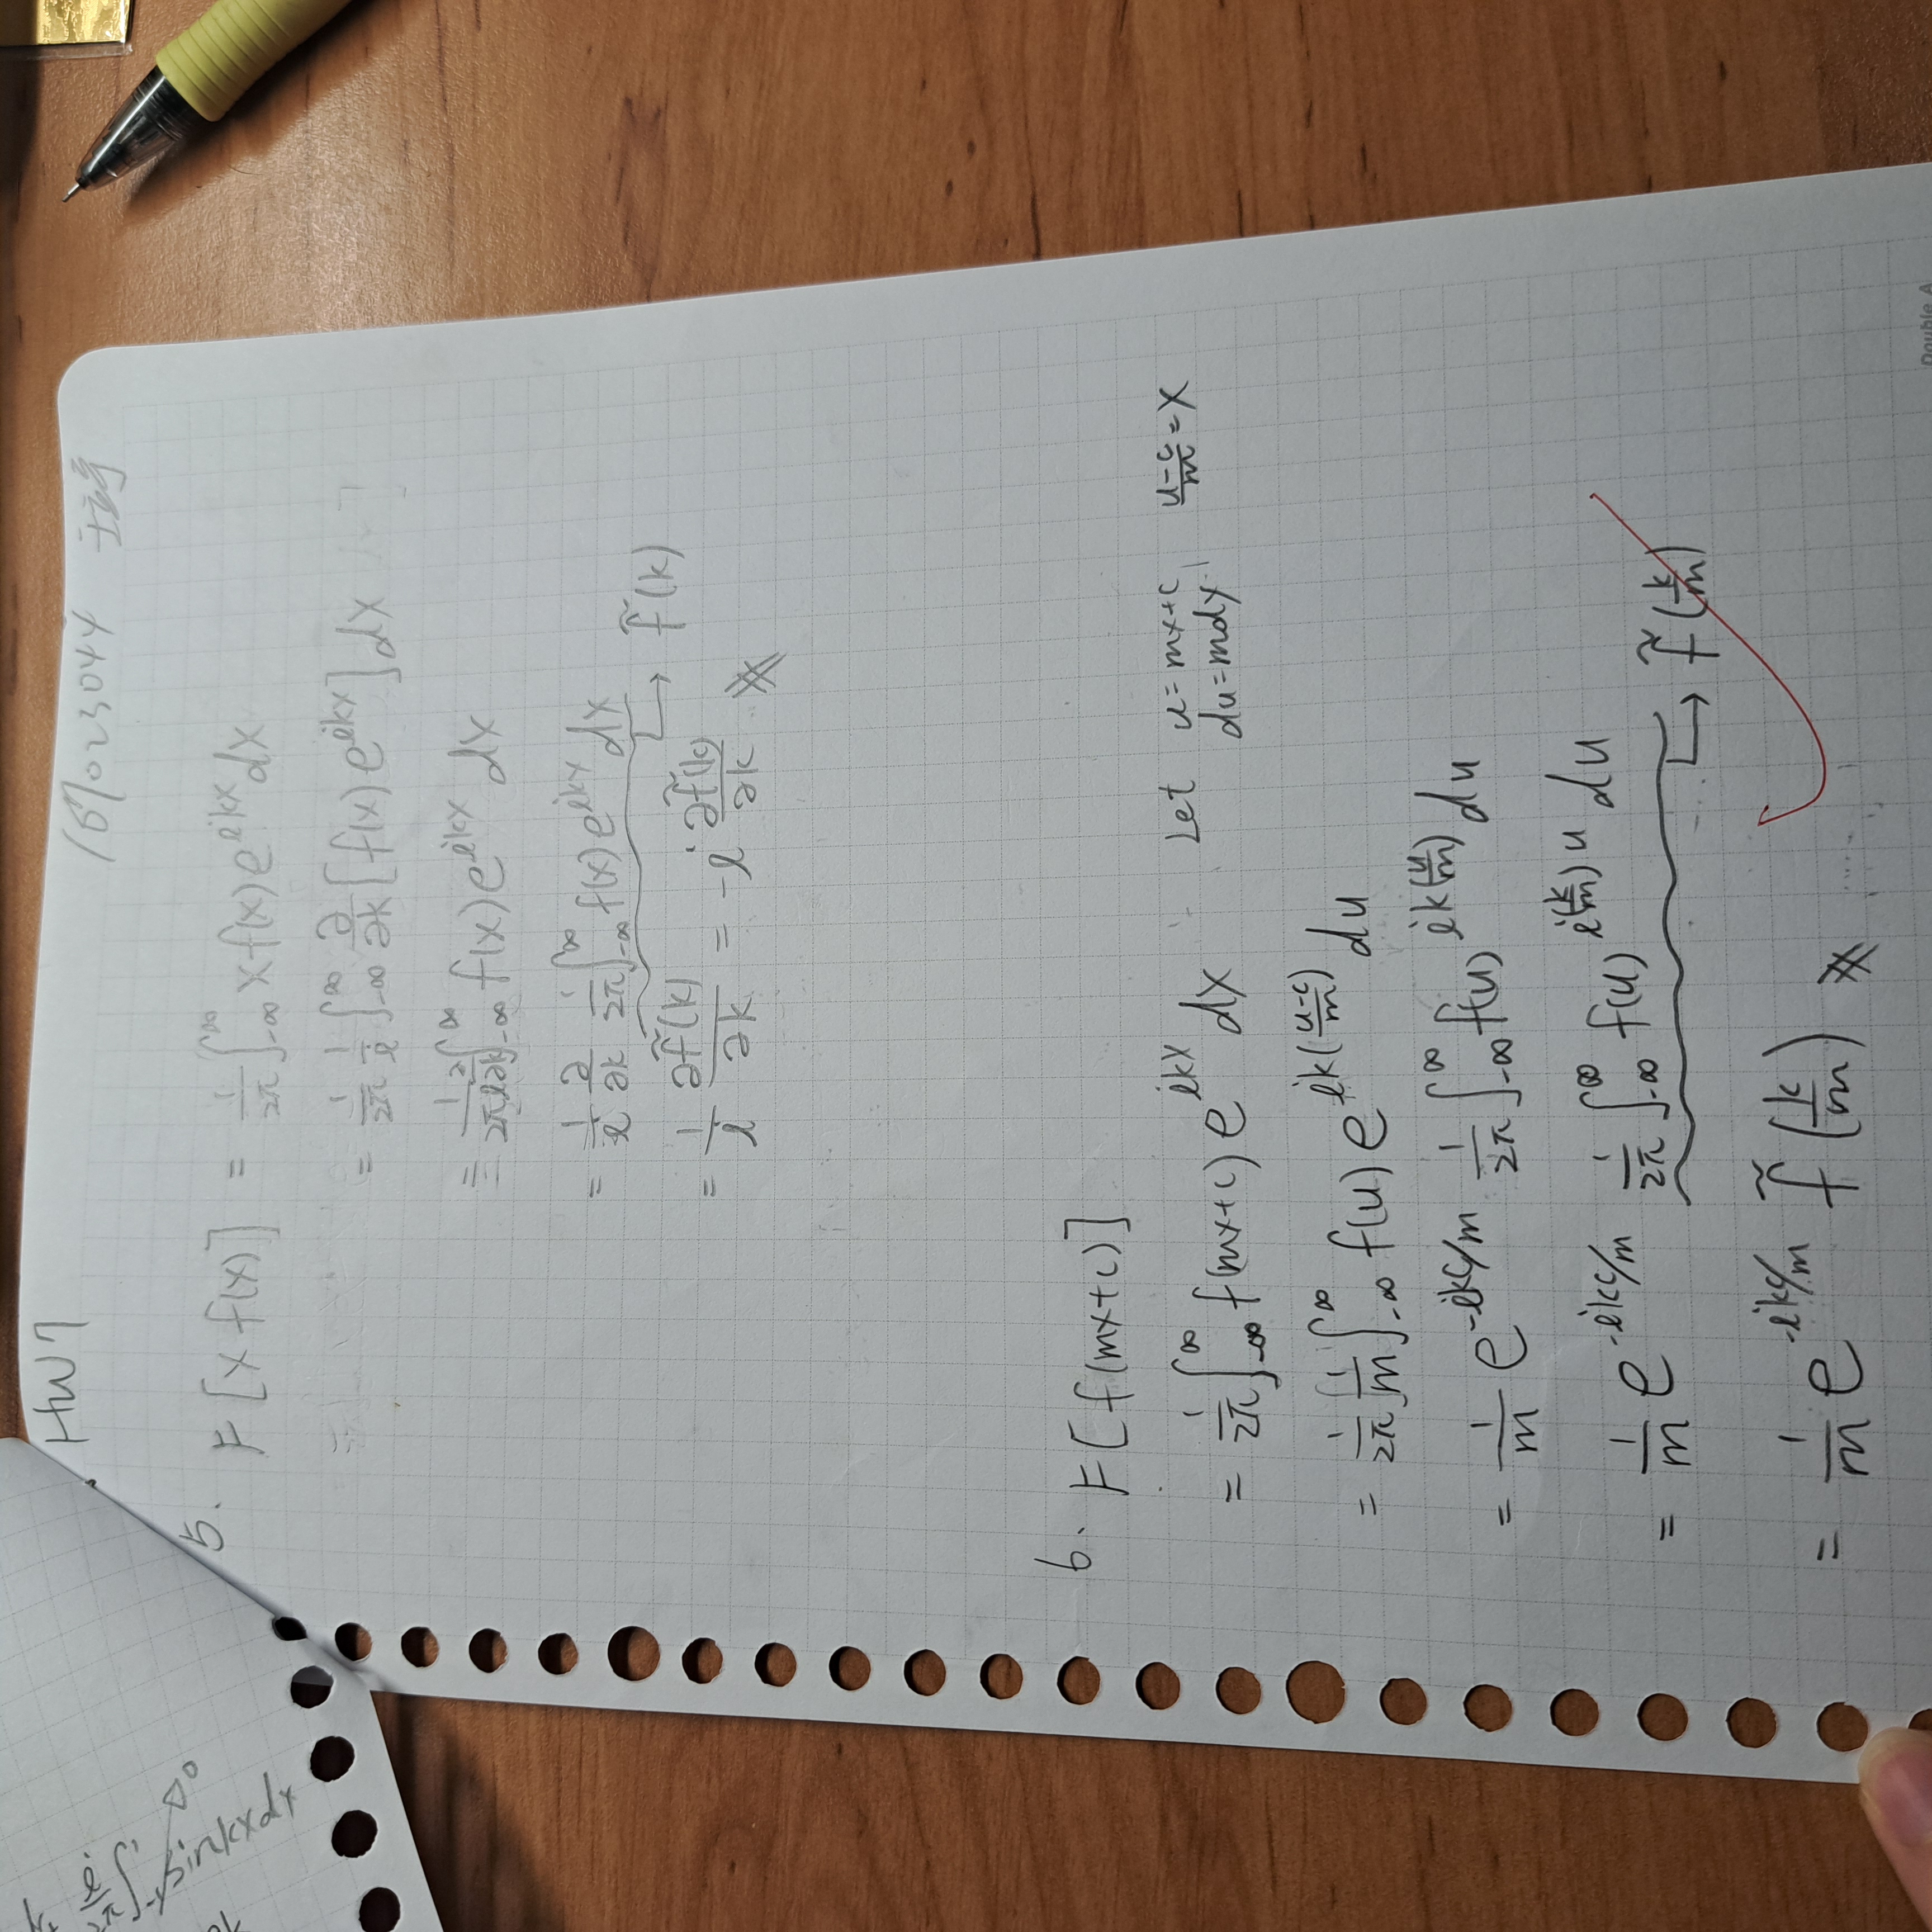 HW7
107023044 王
5. F[x f(x)] = 1/2π ∫_{-∞}^{∞} x f(x) e^{ikx} dx
= 1/2π 1/i ∫_{-∞}^{∞} ∂/∂k [f(x) e^{ikx}] dx
= 1/2πi ∂/∂k ∫_{-∞}^{∞} f(x) e^{ikx} dx
= 1/i ∂/∂k 1/2π ∫_{-∞}^{∞} f(x) e^{ikx} dx
↳ f̃(k)
= 1/i ∂f̃(k)/∂k = -i ∂f̃(k)/∂k
6. F[f(mx+c)]
= 1/2π ∫_{-∞}^{∞} f(mx+c) e^{ikx} dx Let u=mx+c, (u-c)/m = x
du=mdx
= 1/2π 1/m ∫_{-∞}^{∞} f(u) e^{ik((u-c)/m)} du
= 1/m e^{-ikc/m} 1/2π ∫_{-∞}^{∞} f(u)^{ik(u/m)} du
= 1/m e^{-ikc/m} 1/2π ∫_{-∞}^{∞} f(u)^{i(k/m)u} du
↳ f̃(k/m)
= 1/m e^{-ikc/m} f̃(k/m)
Double A